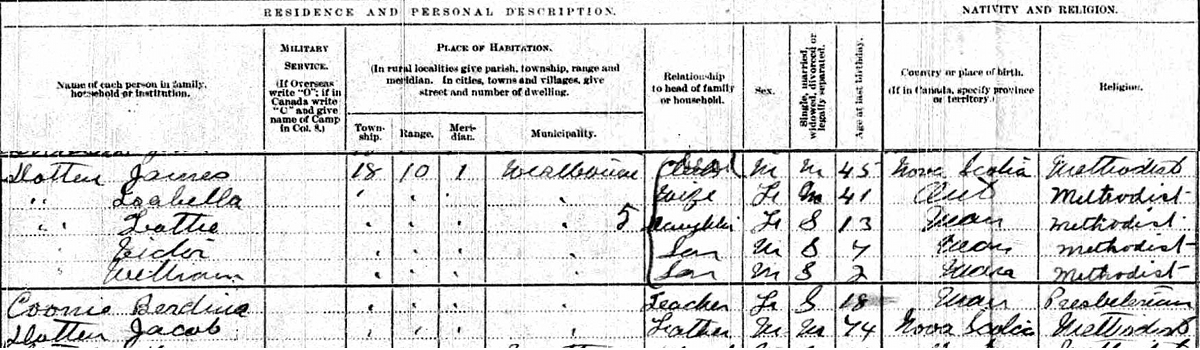 RESIDENCE AND PERSONAL DESCRIPTION. NATIVITY AND RELIGION.
Name of each person in family, household or institution.
MILITARY SERVICE.
(If Overseas write "O"; if in Canada write "C" and give name of Camp in Col. 8.)
PLACE OF HABITATION.
(In rural localities give parish, township, range and meridian. In cities, towns and villages, give street and number of dwelling.
Town-ship. Range. Meri-dian. Municipality.
Relationship to head of family or household.
Sex.
Single, married, widowed, divorced or legally separated.
Age at last birthday.
Country or place of birth.
(If in Canada, specify province or territory.)
Religion.
Hatten James 18 10 1 Westbourne M M 45 Nova Scotia Methodist
" Isabella " " " " Wife F M 41 Ont Methodist
" Lottie " " " " 5 Daughter F S 13 Man Methodist
" Victor " " " " Son M S 7 Man Methodist
" William " " " " Son M S 2 Methodist
Coonie Berdina " " " " Teacher F S 18 Man Presbeterian
Hatten Jacob " " " " Father M M 74 Nova Scotia Methodist